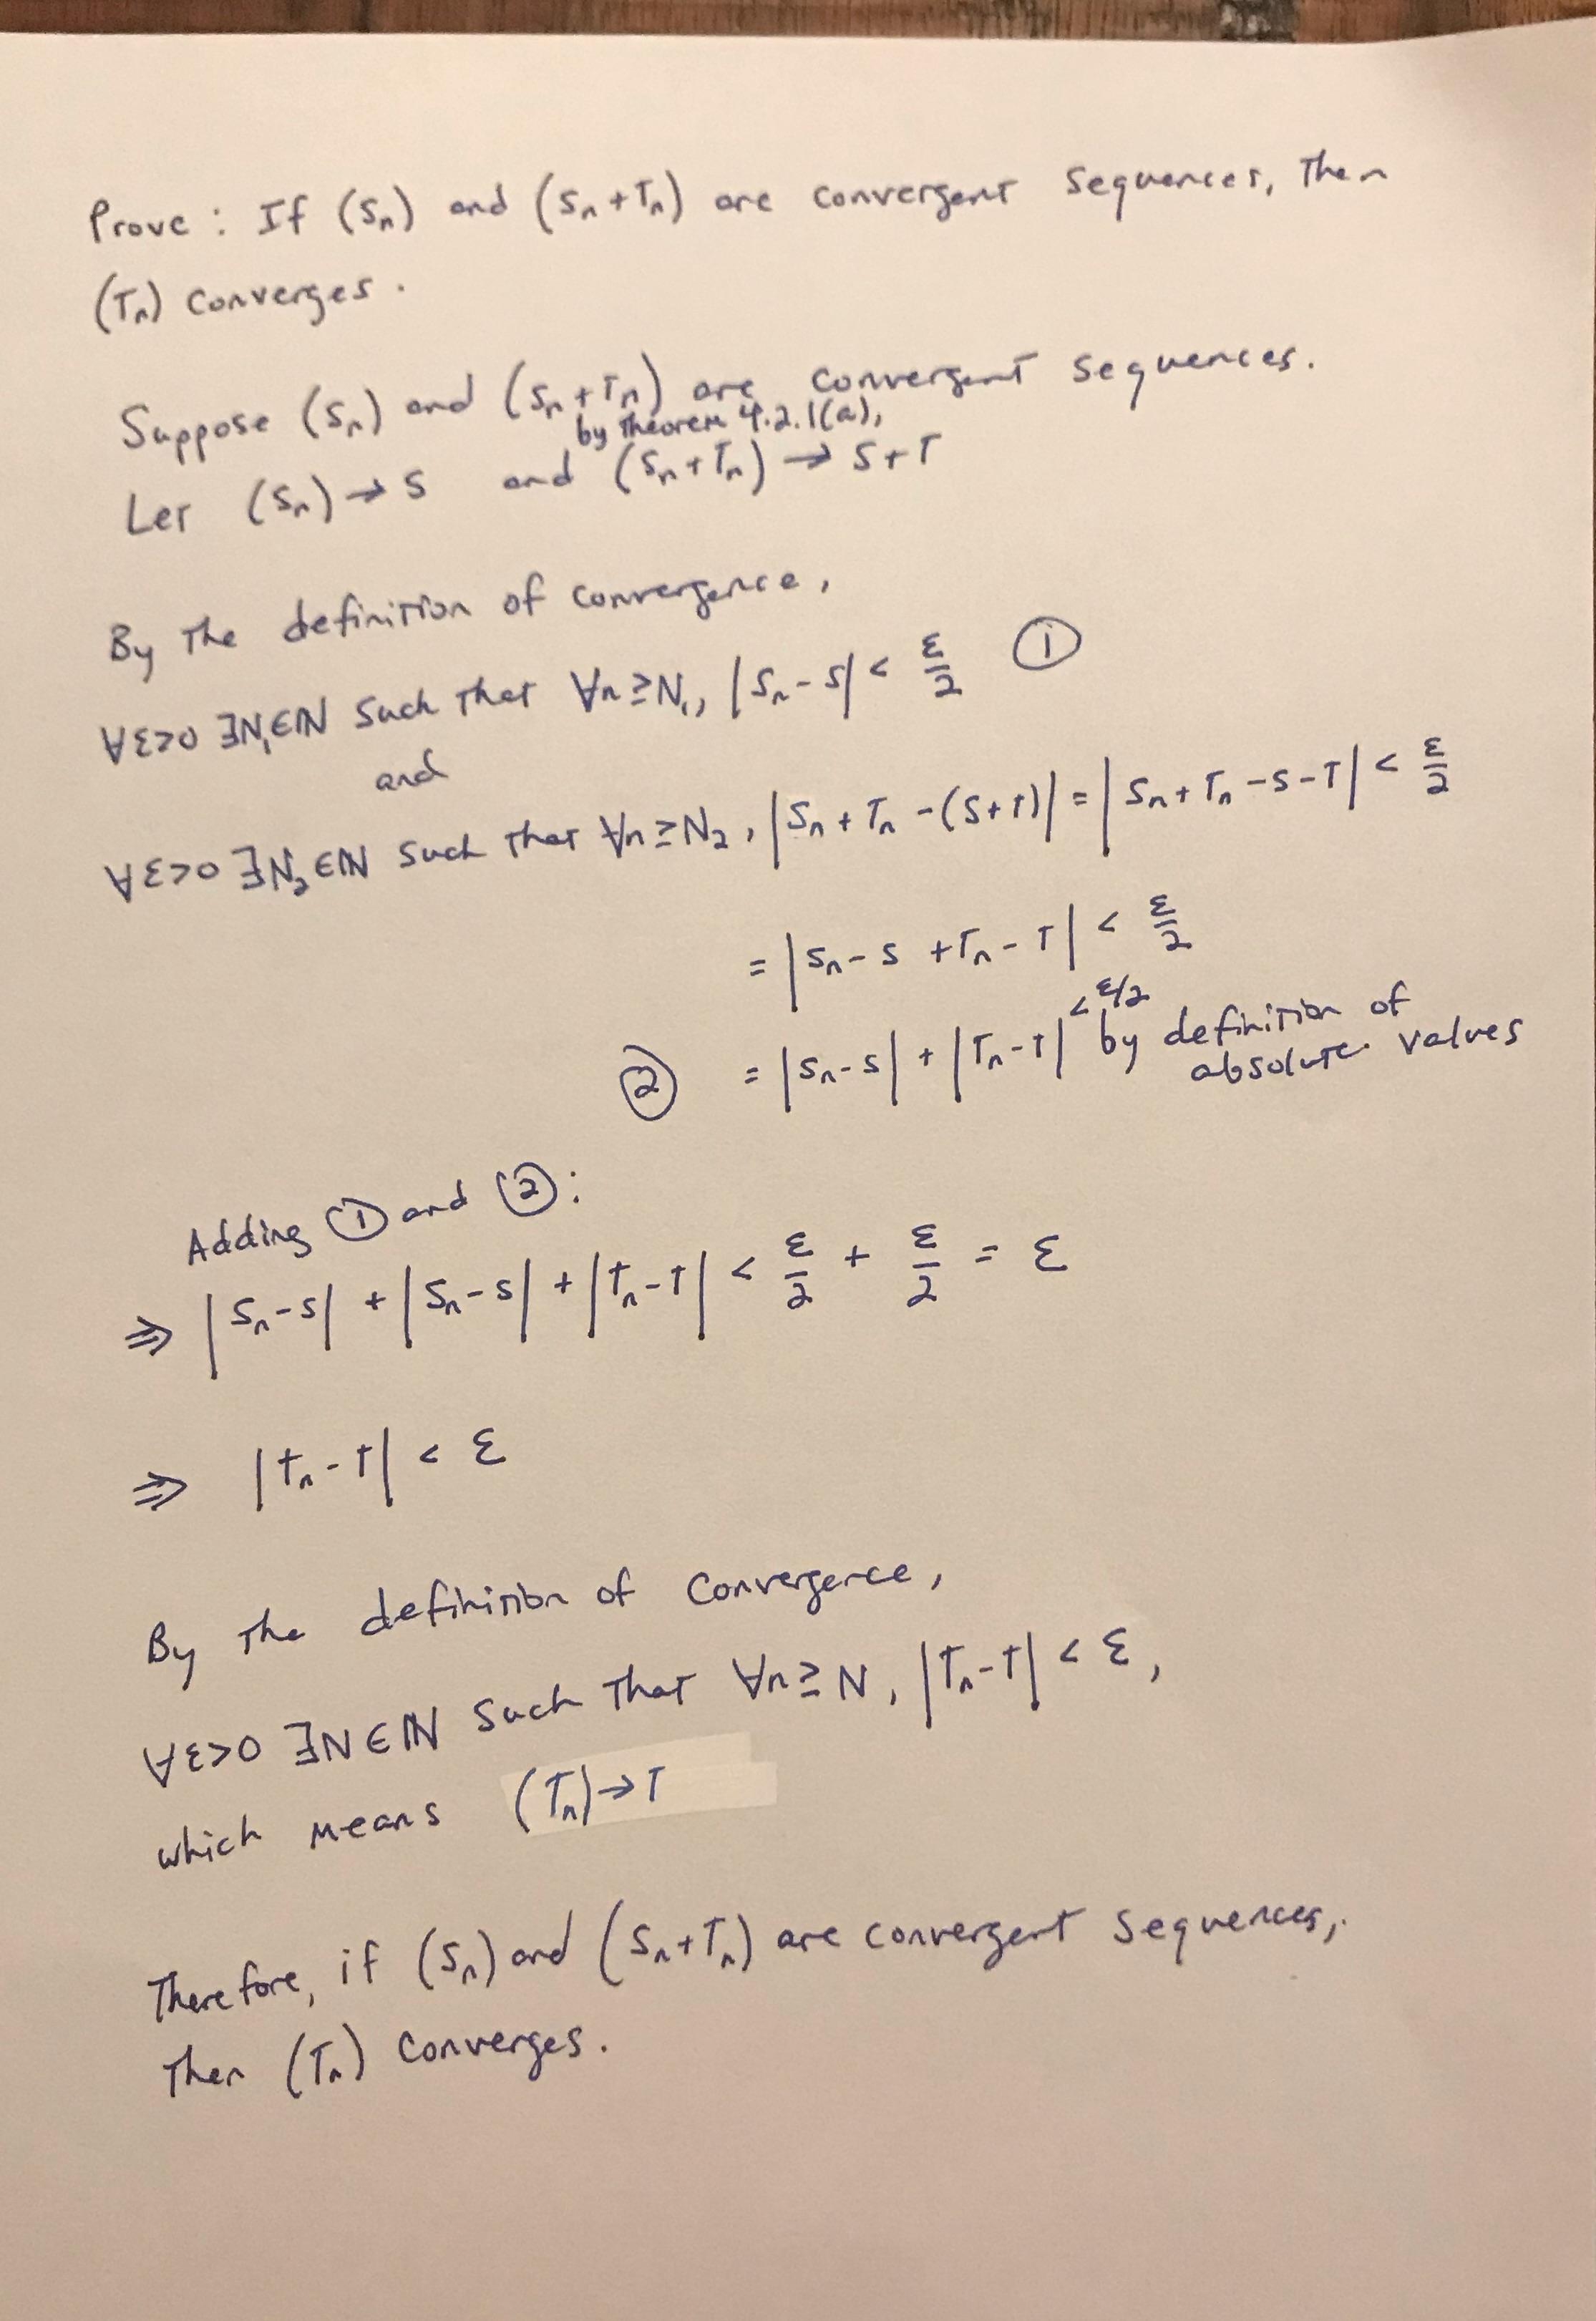 Prove : If (Sₙ) and (Sₙ+Tₙ) are convergent sequences, then
(Tₙ) converges.
Suppose (Sₙ) and (Sₙ+Tₙ) are convergent sequences.
by Theorem 4.2.1(a),
Let (Sₙ) → S and (Sₙ+Tₙ) → S+T
By the definition of convergence,
∀ε>0 ∃N₁∈ℕ such that ∀n≥N₁, |Sₙ-S| < ε/2 ①
and
∀ε>0 ∃N₂∈ℕ such that ∀n≥N₂, |Sₙ+Tₙ-(S+T)| = |Sₙ+Tₙ-S-T| < ε/2
= |Sₙ-S+Tₙ-T| < ε/2
② = |Sₙ-S| + |Tₙ-T| < ε/2 by definition of
absolute values
Adding ① and ②:
⇒ |Sₙ-S| + |Sₙ-S| + |Tₙ-T| < ε/2 + ε/2 = ε
⇒ |Tₙ-T| < ε
By the definition of convergence,
∀ε>0 ∃N∈ℕ such that ∀n≥N, |Tₙ-T| < ε,
which means (Tₙ)→T
Therefore, if (Sₙ) and (Sₙ+Tₙ) are convergent sequences,
then (Tₙ) converges.